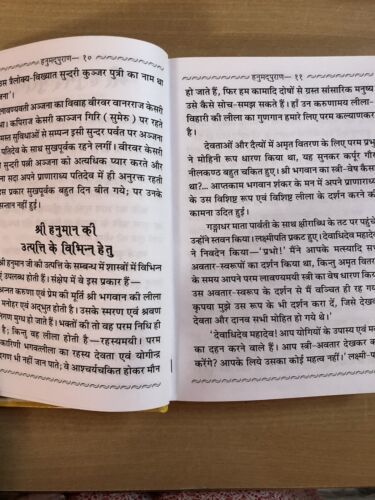 हनुमद्पुराण— १०
उस त्रैलोक्य-विख्यात सुन्दरी कुञ्जर पुत्री का नाम था
ना'।
नावण्यवती अञ्जना का विवाह वीरवर वानरराज केसरी
था। कपिराज केसरी काञ्जन गिरि ( सुमेरु ) पर रहते
मस्त सुविधाओं से सम्पन्न इसी सुन्दर पर्वत पर अञ्जना
पतिदेव के साथ सुखपूर्वक रहने लगीं। वीरवर केसरी
सुन्दरी पत्नी अञ्जना को अत्यधिक प्यार करते और
ना सदा अपने प्राणाराध्य पतिदेव में ही अनुरक्त रहती
इस प्रकार सुखपूर्वक बहुत दिन बीत गये; पर उनके
सन्तान नहीं हुई।
श्री हनुमान की
उत्पत्ति के विभिन्न हेतु
श्री हनुमान जी की उत्पत्ति के सम्बन्ध में शास्त्रों में विभिन्न
एं उपलब्ध होती हैं। संक्षेप में वे इस प्रकार हैं—
अनन्त करुणा एवं प्रेम की मूर्ति श्री भगवान की लीला
मनोहर एवं अद्भुत होती है। उसके स्मरण एवं श्रवण
राण मुग्ध हो जाते हैं। भक्तों की तो वह परम निधि ही
है; किन्तु वह लीला होती है —रहस्यमयी। परम
कारिणी भगवल्लीला का रहस्य देवता एवं योगीन्द्र
राण भी नहीं जान पाते; वे आश्चर्यचकित होकर मौन
हनुमद्पुराण— ११
हो जाते हैं, फिर हम कामादि दोषों से ग्रस्त सांसारिक मनुष्य
उसे कैसे सोच-समझ सकते हैं। हाँ उन करुणामय लीला-
विहारी की लीला का गुणगान हमारे लिए परम कल्याणकर
है।
देवताओं और दैत्यों में अमृत वितरण के लिए परम प्रभु
ने मोहिनी रूप धारण किया था, यह सुनकर कर्पूर गौर
नीलकण्ठ बहुत चकित हुए। श्री भगवान का स्त्री-वेष कैसा
था?... आप्तकाम भगवान शंकर के मन में अपने प्राणाराध्य
के उस विशिष्ट रूप एवं विशिष्ट लीला के दर्शन करने की
कामना उदित हुई।
गङ्गाधर माता पार्वती के साथ क्षीराब्धि के तट पर पहुंचे
उन्होंने स्तवन किया। लक्ष्मीपति प्रकट हुए। देवाधिदेव महादेव
ने निवेदन किया—'प्रभो!' मैंने आपके मत्स्यादि सभी
अवतार-स्वरूपों का दर्शन किया था, किन्तु अमृत वितरण
के समय आपने परम लावण्यमयी स्त्री का वेष धारण किया
उस अवतार-स्वरूप के दर्शन से मैं वञ्चित ही रह गया
कृपया मुझे उस रूप के भी दर्शन करा दें, जिसे देखकर
देवता और दानव सभी मोहित हो गये थे।'
'देवाधिदेव महादेव! आप योगियों के उपास्य एवं मदन
का दहन करने वाले हैं। आप स्त्री-अवतार देखकर क्या
करेंगे? आपके लिये उसका कोई महत्व नहीं।' लक्ष्मी-प